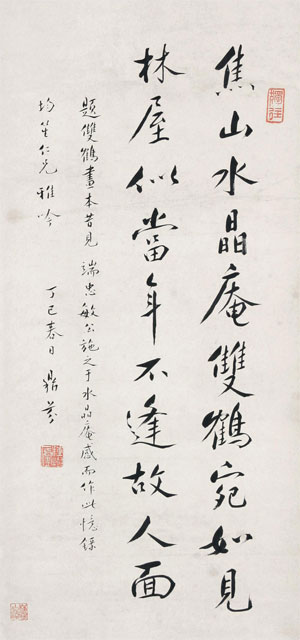 焦山水晶庵雙鶴宛如見
林屋似當年不逢故人面
題雙鶴畫本昔見 端忠敏公施之于水晶庵感而作此憶錄
均笙仁兄雅吟
丁巳春日 鼎芬